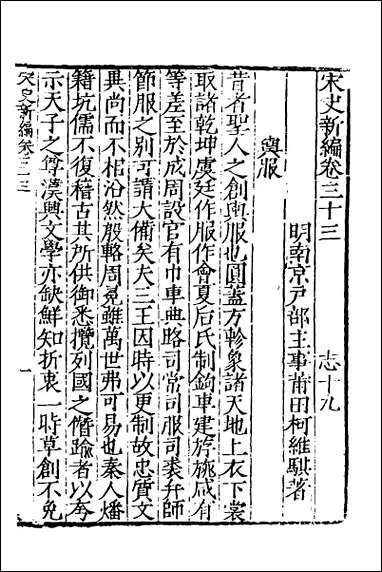 宋史新編卷三十三　志十九
明南京戸部主事莆田柯維騏著
輿服
昔者聖人之創輿服也圓蓋方軫象諸天地上衣下裳
取諸乾坤虞廷作服作會夏后氏制鉤車建旂旐咸有
等差至於成周設官有巾車典路司常司服司裘弁師
節服之别可謂大備矣夫三王因時以更制故忠質文
異尚而不相沿然殷輅周冕雖萬世弗可易也秦人燔
籍坑儒不復稽古其所供御悉攬列國之僭踰者以夸
示天子之尊漢興文學亦缺鮮知折衷一時草創不免
宋史新編卷三三
一